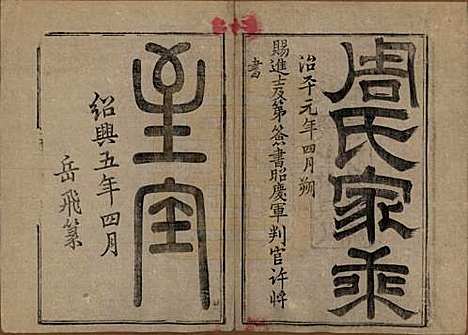 周氏家乘
治平元年四月朔
賜進士及第簽書昭慶軍判官許將
書
至寶
紹興五年四月
岳飛篆